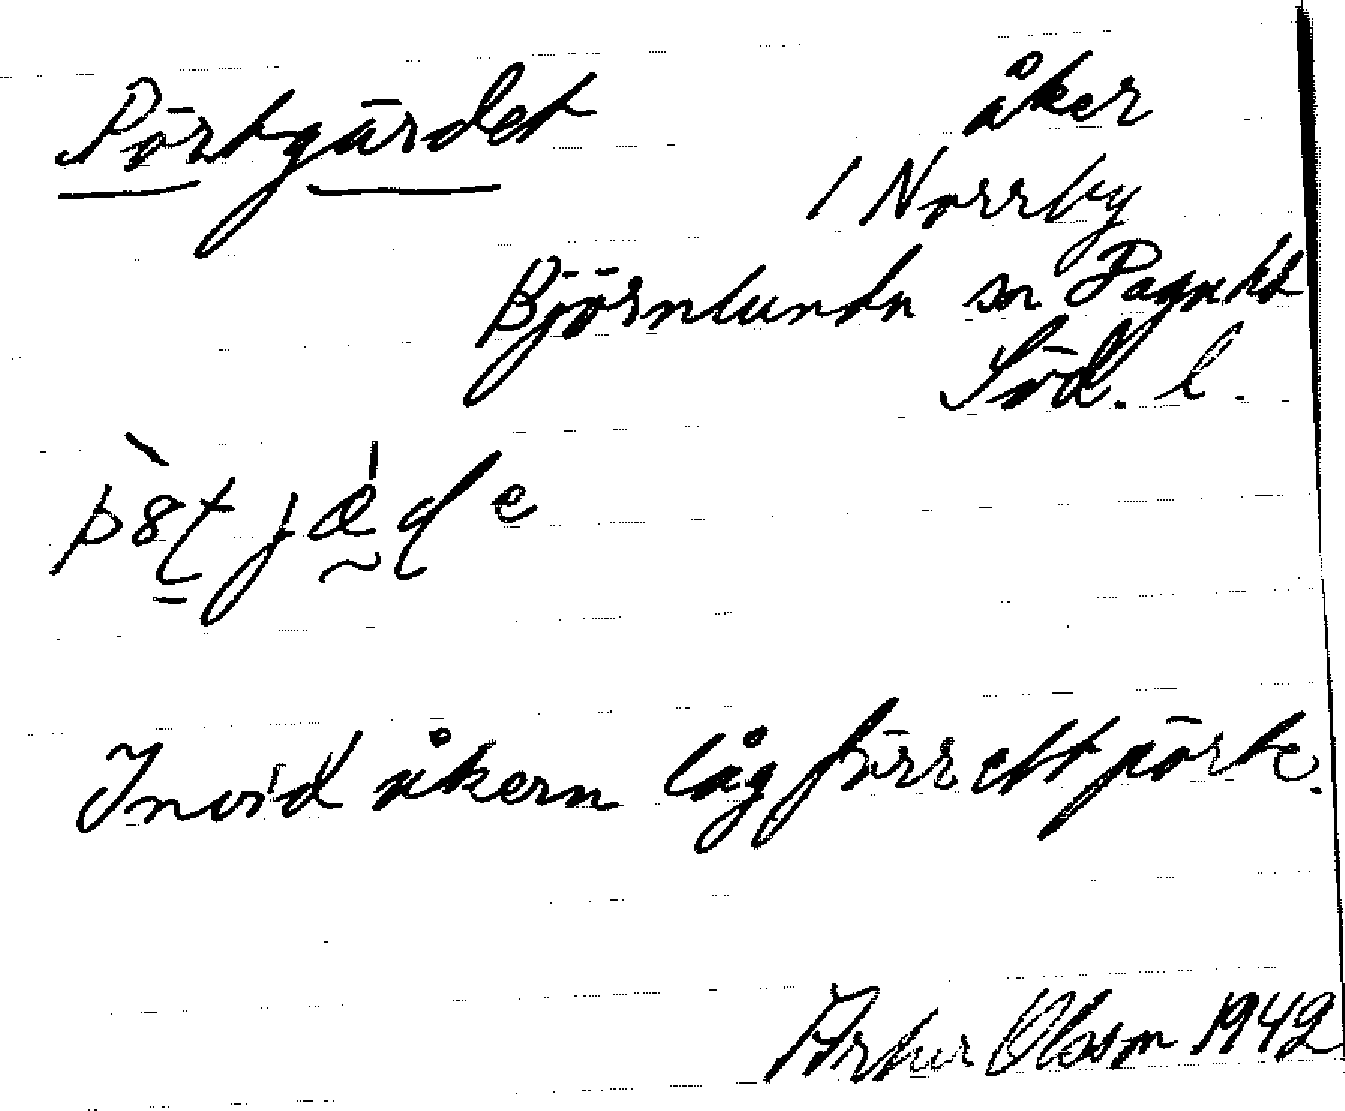 Pörtgärdet
åker
1 Norrby
Björnlunda sn Daga hd
Söd. l.
Invid åkern låg förr ett pörte.
Artur Olsson 1942